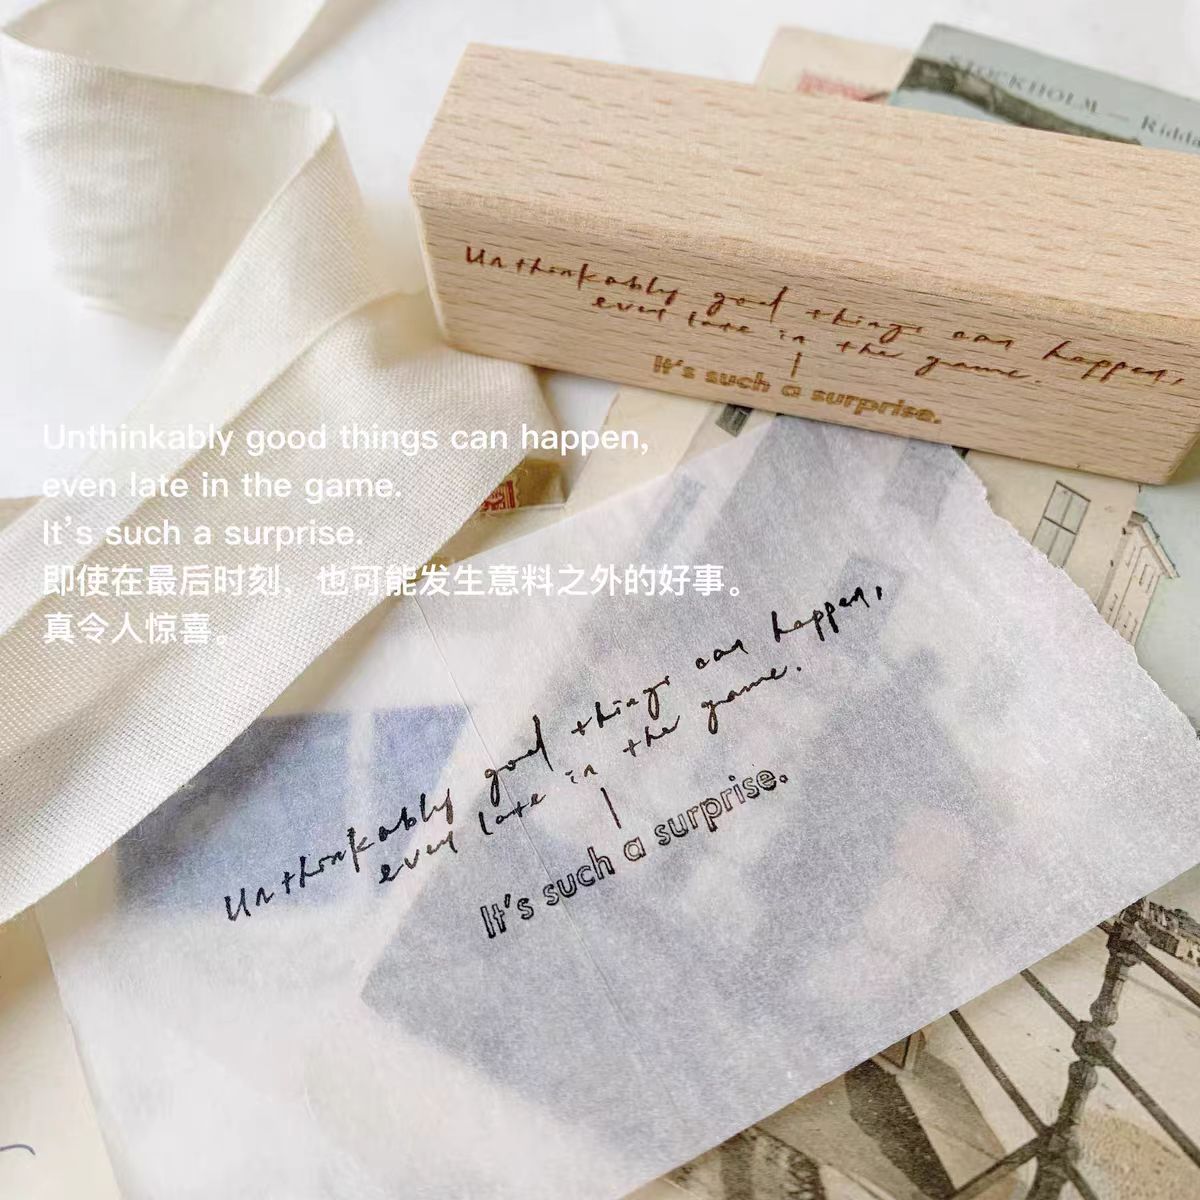 STOCKHOLM — Ridda
Unthinkably good things can happen,
even late in the game.
It's such a surprise.
Unthinkably good things can happen,
even late in the game.
It's such a surprise.
即使在最后时刻，也可能发生意料之外的好事。
真令人惊喜。
Unthinkably good things can happen,
even late in the game.
It's such a surprise.